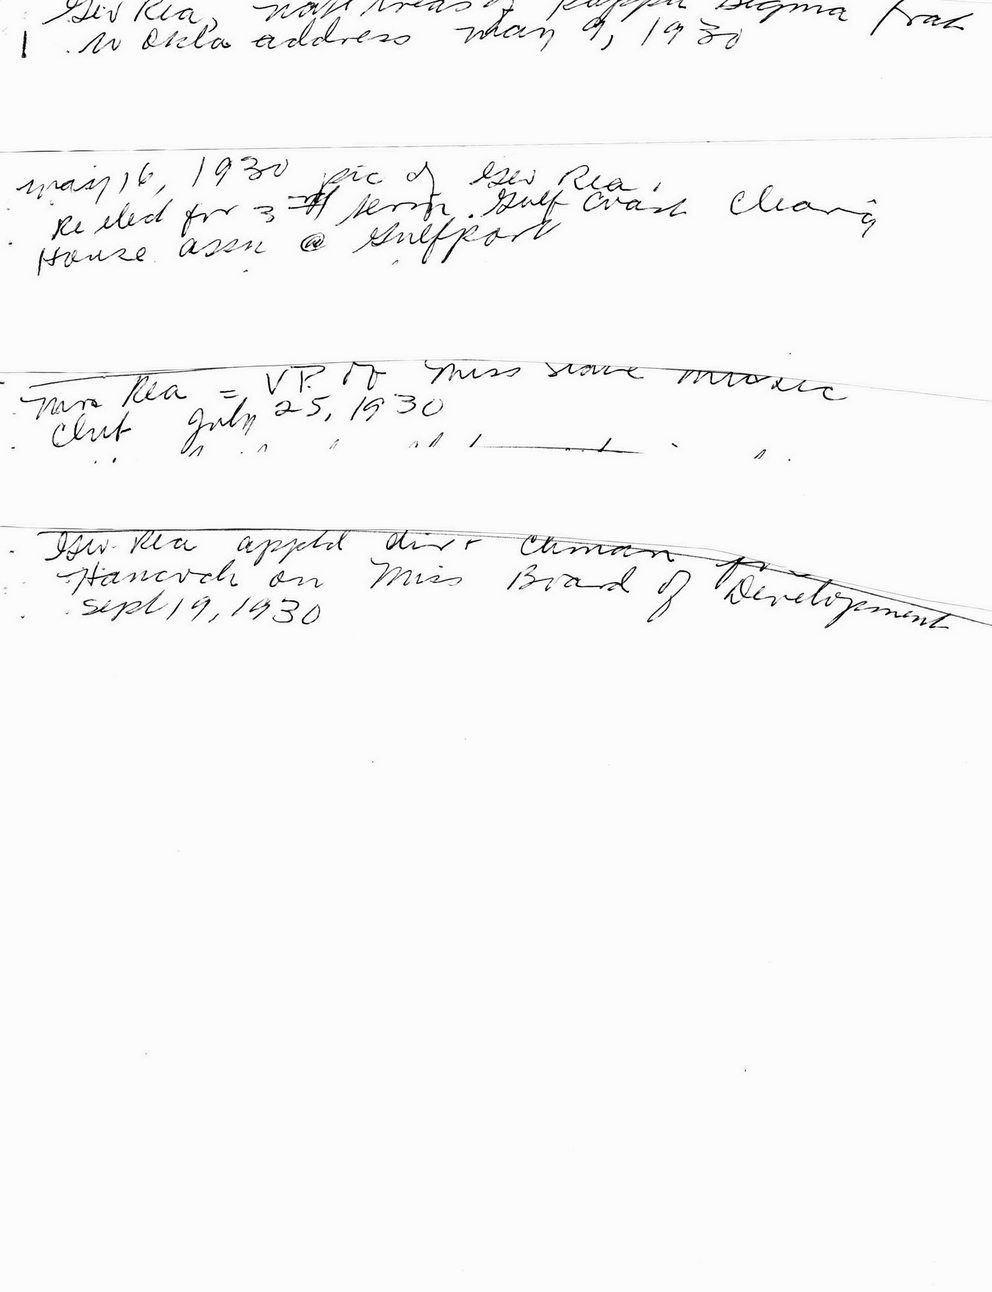 Geo Rea, Nat'l treas of Kappa Sigma frat
in Okla address May 9, 1930
May 16, 1930 pic of Geo Rea,
Re eled for 3rd term. Gulf Coast Clearig
House assn @ Gulfport
Mrs Rea = V.P. of Miss State Music
Club July 25, 1930
Geo. Rea apptd dir +
Hancock on Miss Board of Development
Sept 19, 1930